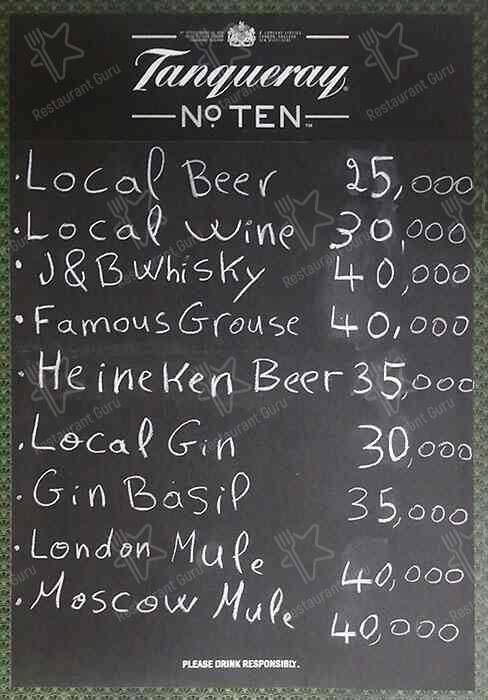 Tanqueray
No TEN
· Local Beer 25,000
· Local Wine 30,000
· J&B Whisky 40,000
· Famous Grouse 40,000
· Heineken Beer 35,000
· Local Gin 30,000
· Gin Basil 35,000
· London Mule 40,000
· Moscow Mule 40,000
PLEASE DRINK RESPONSIBLY.
Restaurant Guru